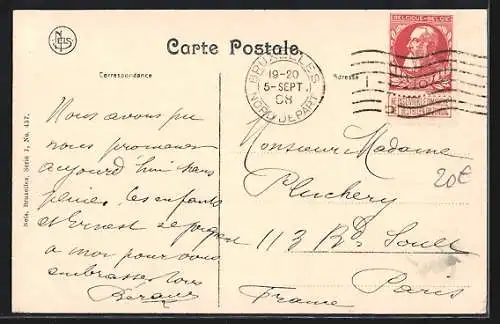 NELS
Carte Postale.
Correspondance
Adresse
BELGIQUE·BELGIË
BRUXELLES
19-20
5-SEPT.
08
NORD DEPART
Nels, Bruxelles, Série 7, No. 437.
Nous avons pu
nous promener
aujourd'hui sans
pluie. les enfants
et Ernest se joignent
à moi pour vous
embrasser tous
Monsieur Madame
Pluchery
20€
113 Bd. Soult
Paris
France